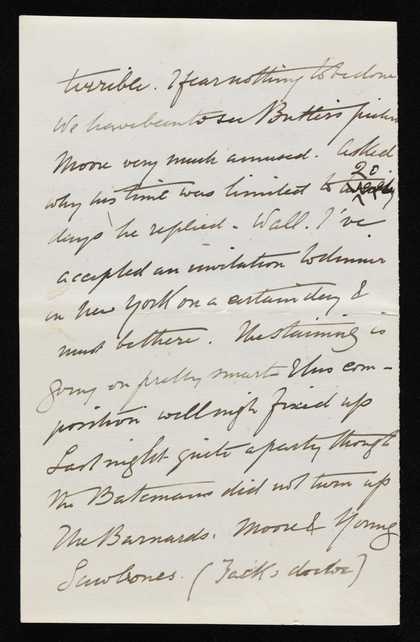 terrible. I fear nothing to be done
We have been to see Butler's picture
Moore very much amused. Asked
why his time was limited to 20
days he replied - Wall. I've
accepted an invitation to dinner
in New York on a certain day &
must be there. The staining is
going on pretty smart & this com-
position well nigh fixed up
Last night quite a party though
the Batemans did not turn up
The Barnards. Moore & Young
Sawbones. (Jack's doctor)